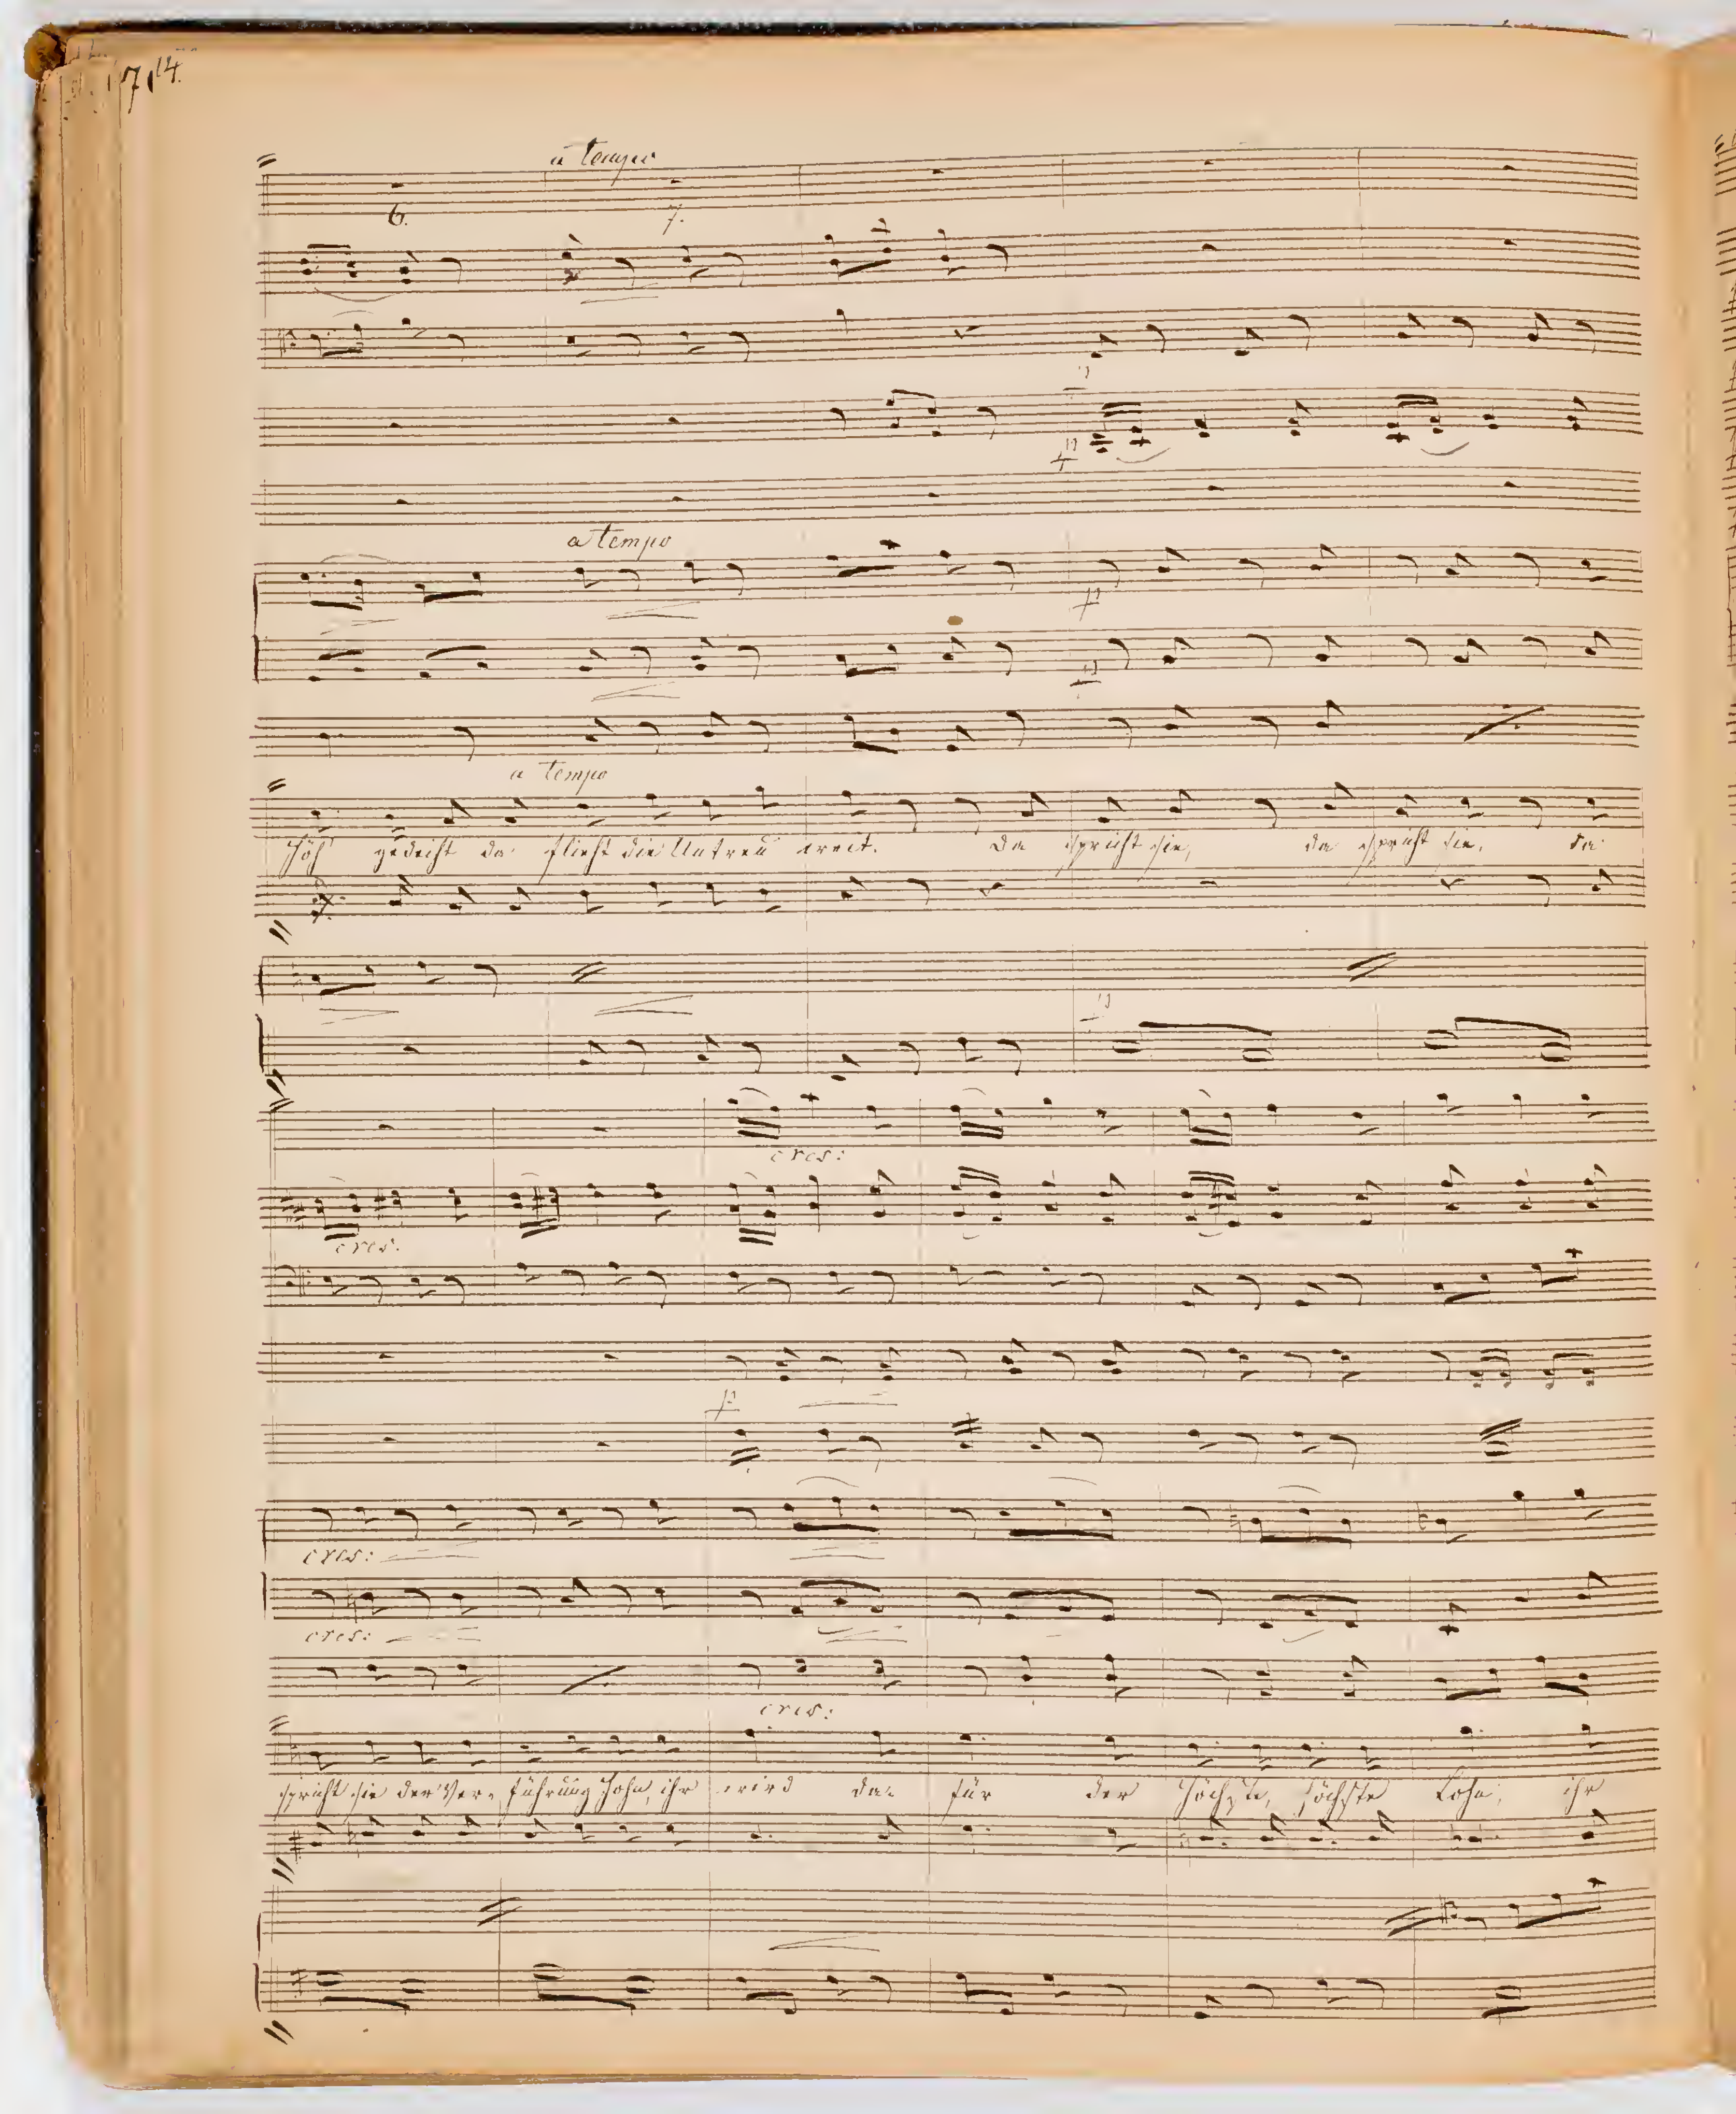 714.
a tempo
6. 7.
p
p
a tempo
p
p
a tempo
gedeiht da flieht die Untreu weit. Da spricht sie, da spricht sie, da
p
cres:
cres:
p
cres:
cres:
cres:
spricht sie der Verführung Hohn, ihr wird dafür der höchste, höchste Lohn, ihr